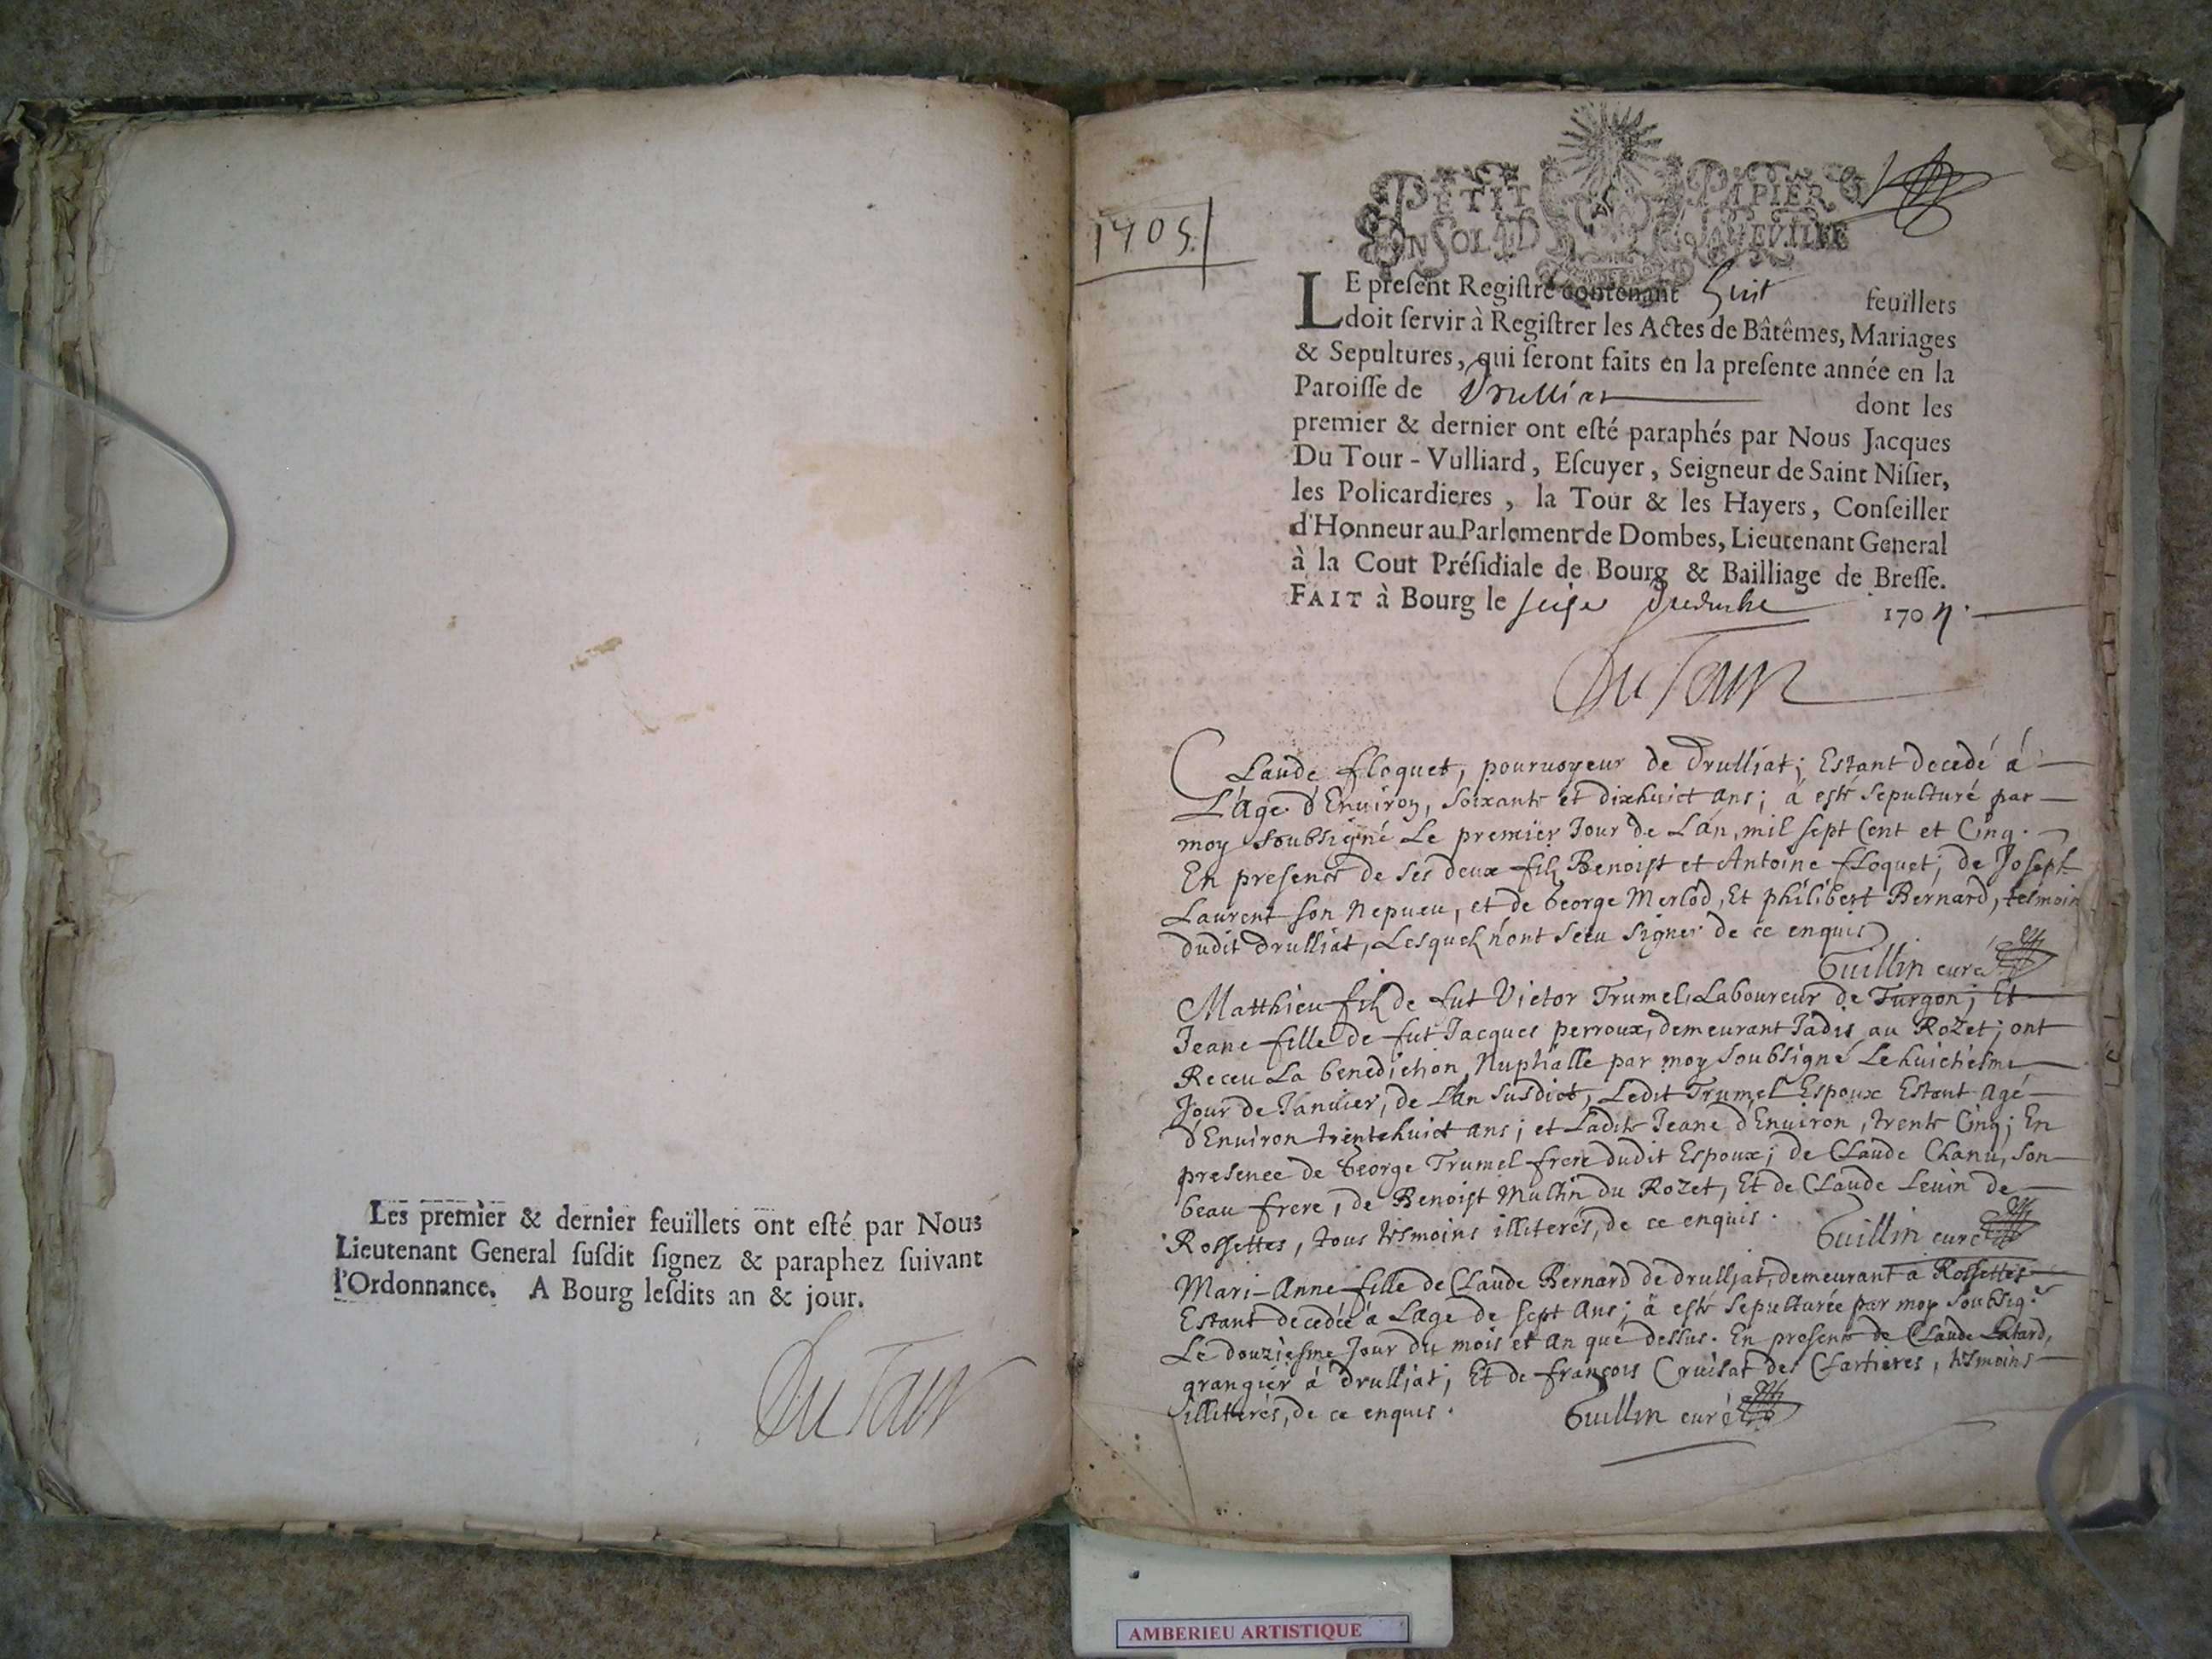 Les premier & dernier feuillets ont esté par Nous
Lieutenant General susdit signez & paraphez suivant
l'Ordonnance. A Bourg lesdits an & jour.
Du Tour
1705.
PETIT PAPIER
UN SOL 4 D LA FEUILLE
LE present Registre contenant huit feuillets
doit servir à Registrer les Actes de Bâtêmes, Mariages
& Sepultures, qui seront faits en la presente année en la
Paroisse de Drulliat dont les
premier & dernier ont esté paraphés par Nous Jacques
Du Tour-Vulliard, Escuyer, Seigneur de Saint Nisier,
les Policardieres, la Tour & les Hayers, Conseiller
d'Honneur au Parlement de Dombes, Lieutenant General
à la Cour Présidiale de Bourg & Bailliage de Bresse.
FAIT à Bourg le 1704
Du Tour
Claude floquet, pourvoyeur de Drulliat; Estant decedé á
L'áge d'Environ, Soixante et dixhuict ans; á esté sepulturé par
moy Soubsigné Le premier Jour de L'án, mil sept Cent et Cinq.
En presence de ses deux filz Benoist et Antoine floquet; de Joseph
Laurent son Nepueu, et de George Merlod, Et philibert Bernard, tesmoin
dudit Drulliat, Lesquelz n'ont sceu signer de ce enquis
Guillin curé
Matthieu filz de fut Victor Trumel, Laboureur de Turgon; Et
Jeane fille de fut Jacques perroux, demeurant Jadis au Rozet; ont
Receu La benediction Nuptialle par moy soubsigné Le huictiesme
Jour de Janvier, de L'an susdict, Ledit Trumel Espoux Estant agé
d'Environ trentehuict ans; et Ladite Jeane d'Environ, trente Cinq; En
presence de George Trumel frere dudit Espoux; de Claude Chanu, son
beau frere, de Benoist Multin du Rozet, Et de Claude Levin de
Rossettes, tous tesmoins illiterés, de ce enquis.
Guillin curé
Mari-Anne fille de Claude Bernard de drulliat, demeurant a Rossettes
Estant decedée a L'age de sept ans; á esté sepulturée par moy soubsig.é
Le douziesme Jour du mois et an que dessus. En presence de Claude Latard,
grangier á drulliat; Et de françois Cruisat des Chartieres, tesmoins
illiterés, de ce enquis.
Guillin curé
AMBERIEU ARTISTIQUE